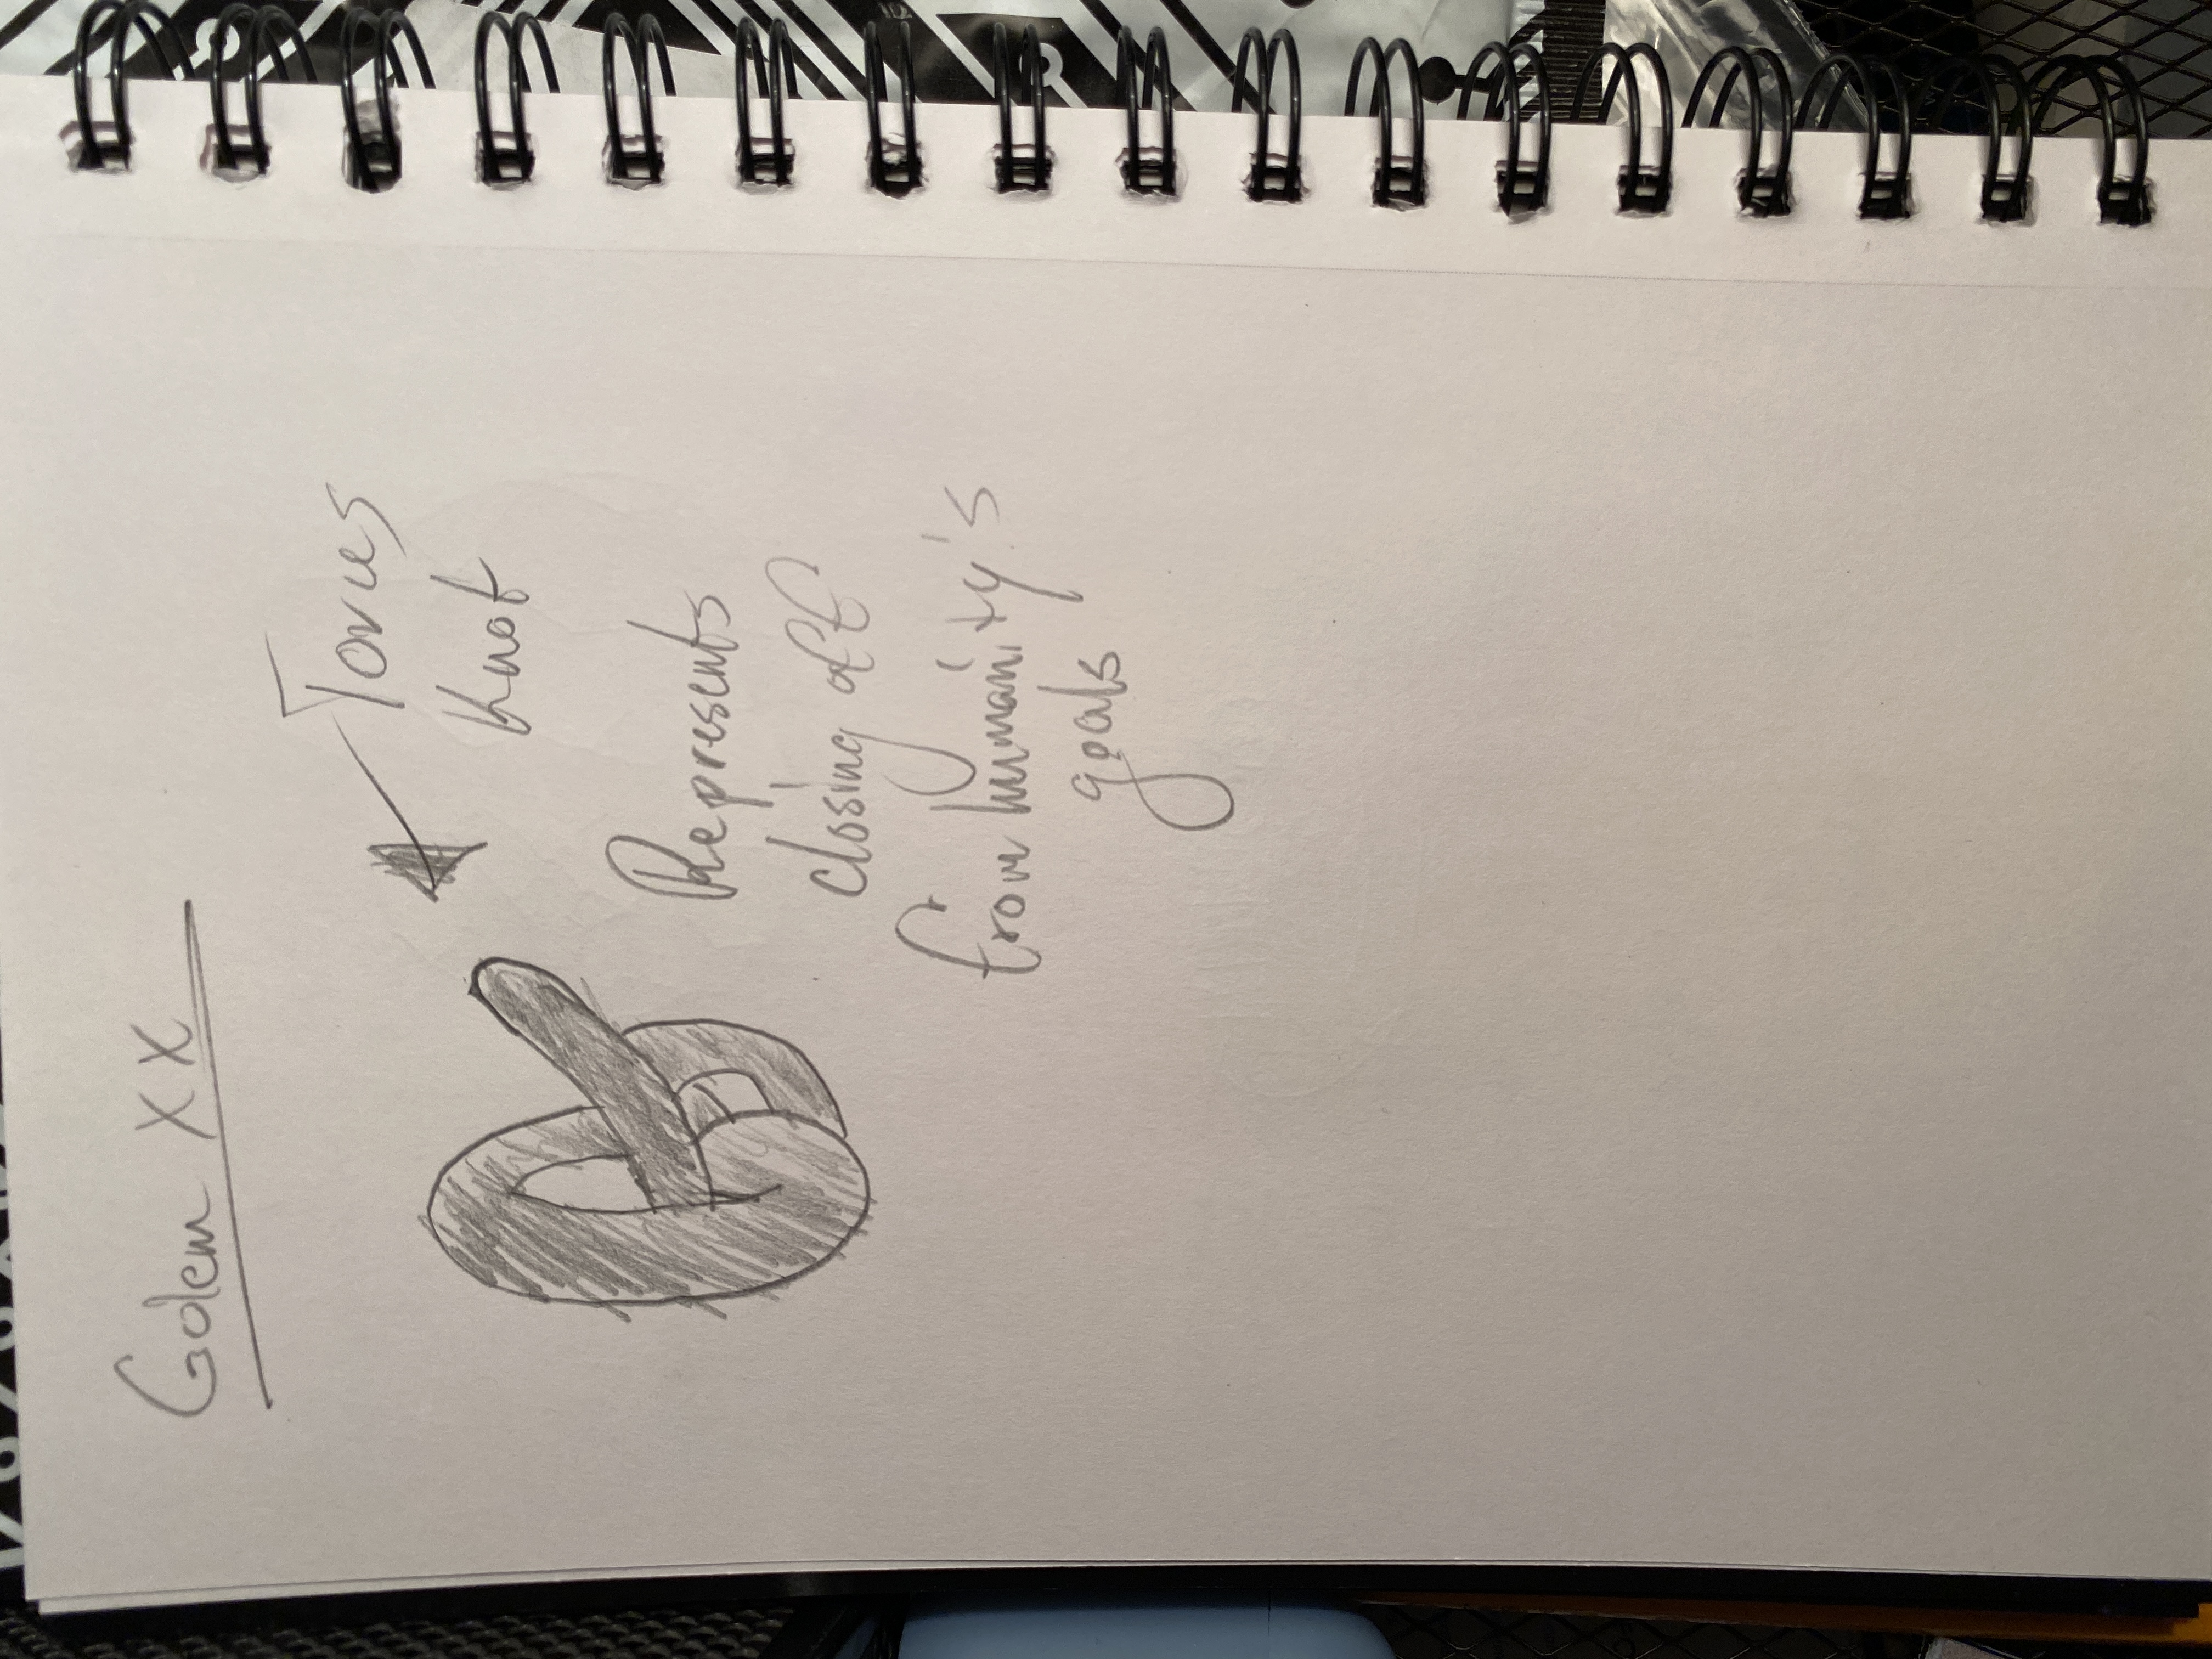 Golem XX
Torus
Knot
Represents
closing off
from humanity's
goals